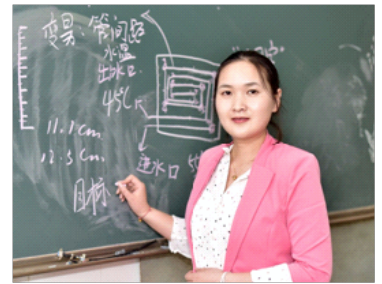 变量：管间距
水温
出水口
45℃
11.1cm
12.5cm
目标
进水口